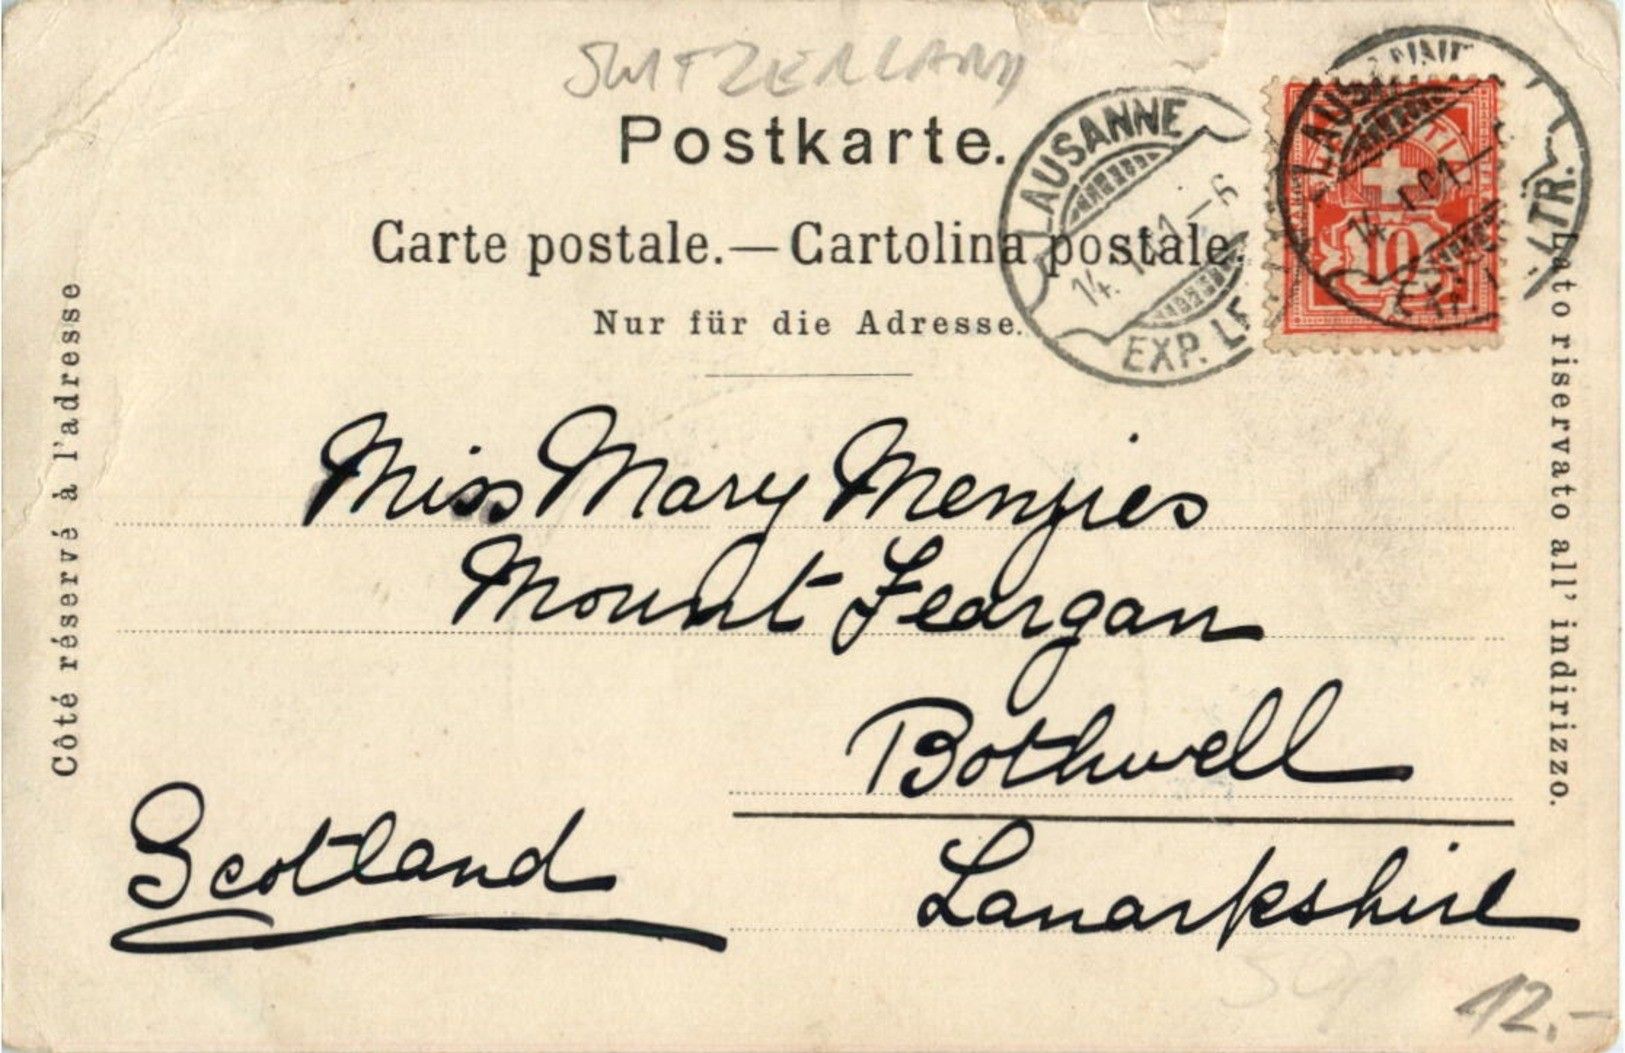 SWITZERLAND
Postkarte.
Carte postale. — Cartolina postale.
Nur für die Adresse.
LAUSANNE
14. I. 01 – 6
EXP. LE
LAUSANNE
14. I. 01 –
EXP. LETTR.
10
Côté réservé à l'adresse
Lato riservato all' indirizzo.
Miss Mary Menzies
Mount Feargan
Bothwell
Lanarkshire
Scotland
12.-